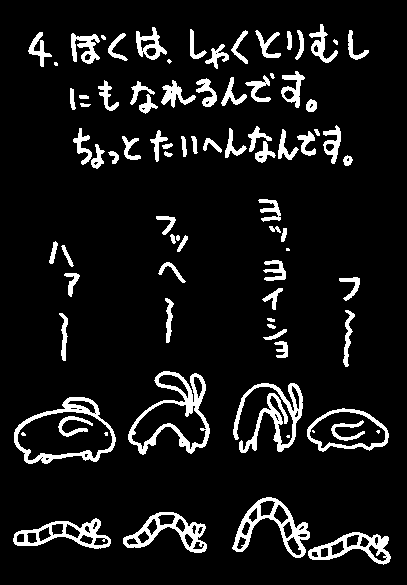 4. ぼくは、しゃくとりむし
にもなれるんです。
ちょっとたいへんなんです。
ヨッ、ヨイショ
フッヘ〜
ハァ〜
フ〜〜